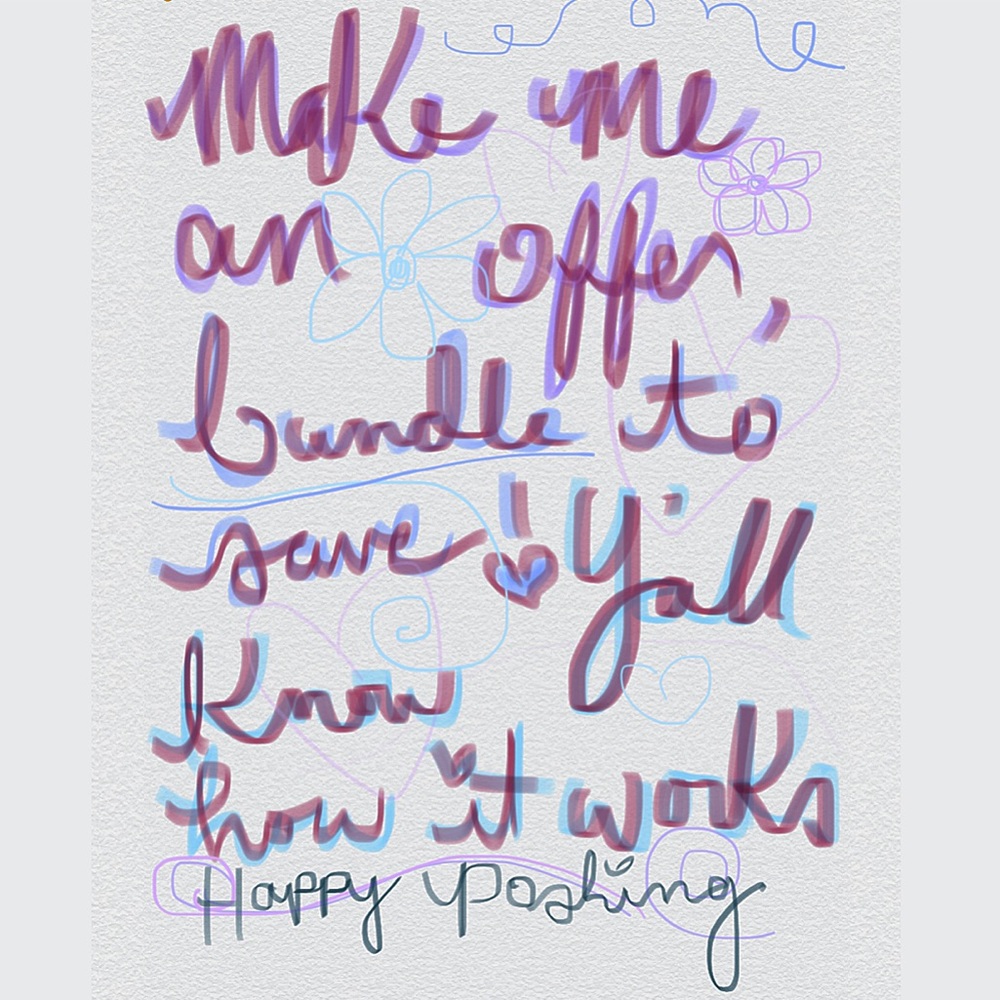 Make me
an offer,
bundle to
save! Y'all
know
how it works
Happy Poshing